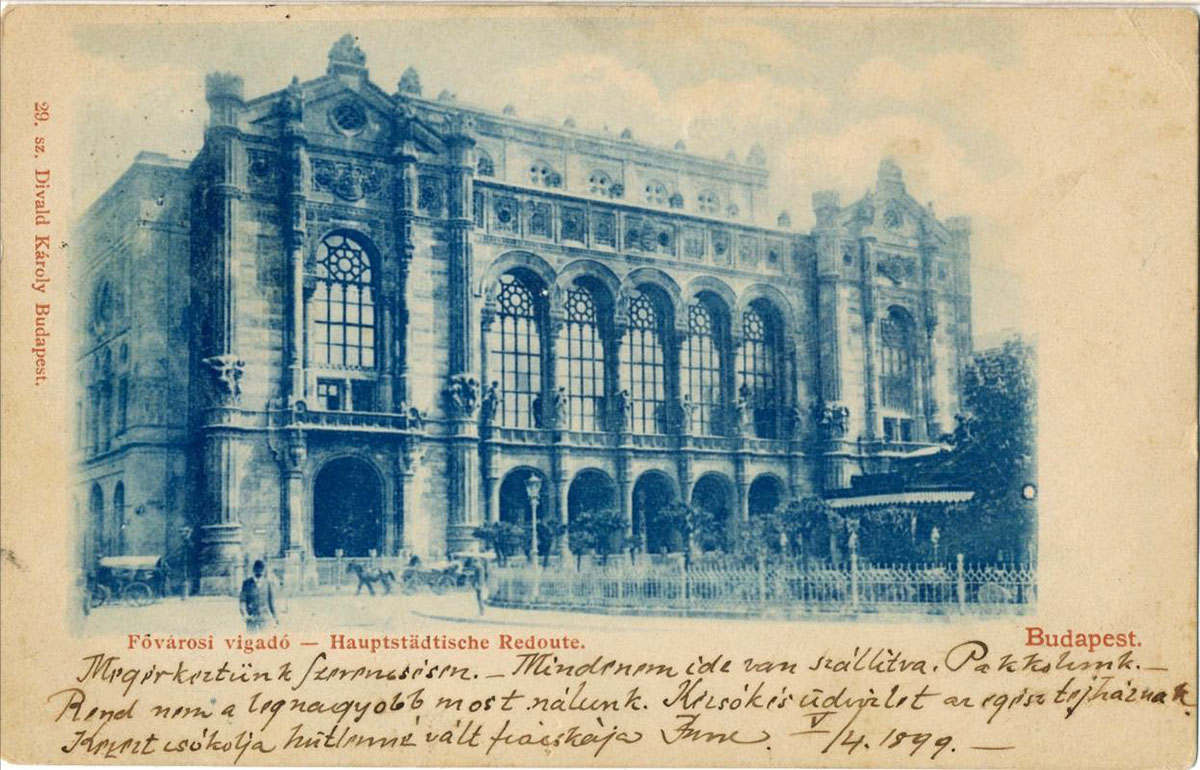 29. sz. Divald Károly Budapest.
Fővárosi vigadó — Hauptstädtische Redoute.
Budapest.
Megérkeztünk szerencsésen. — Mindenem ide van szállitva. Pakkolunk. —
Rend nem a legnagyobb most nálunk. Kézcsók és üdvözlet az egész tejháznak
Kezeit csókolja hűtlenné vált fiacskája V/4. 1899. —